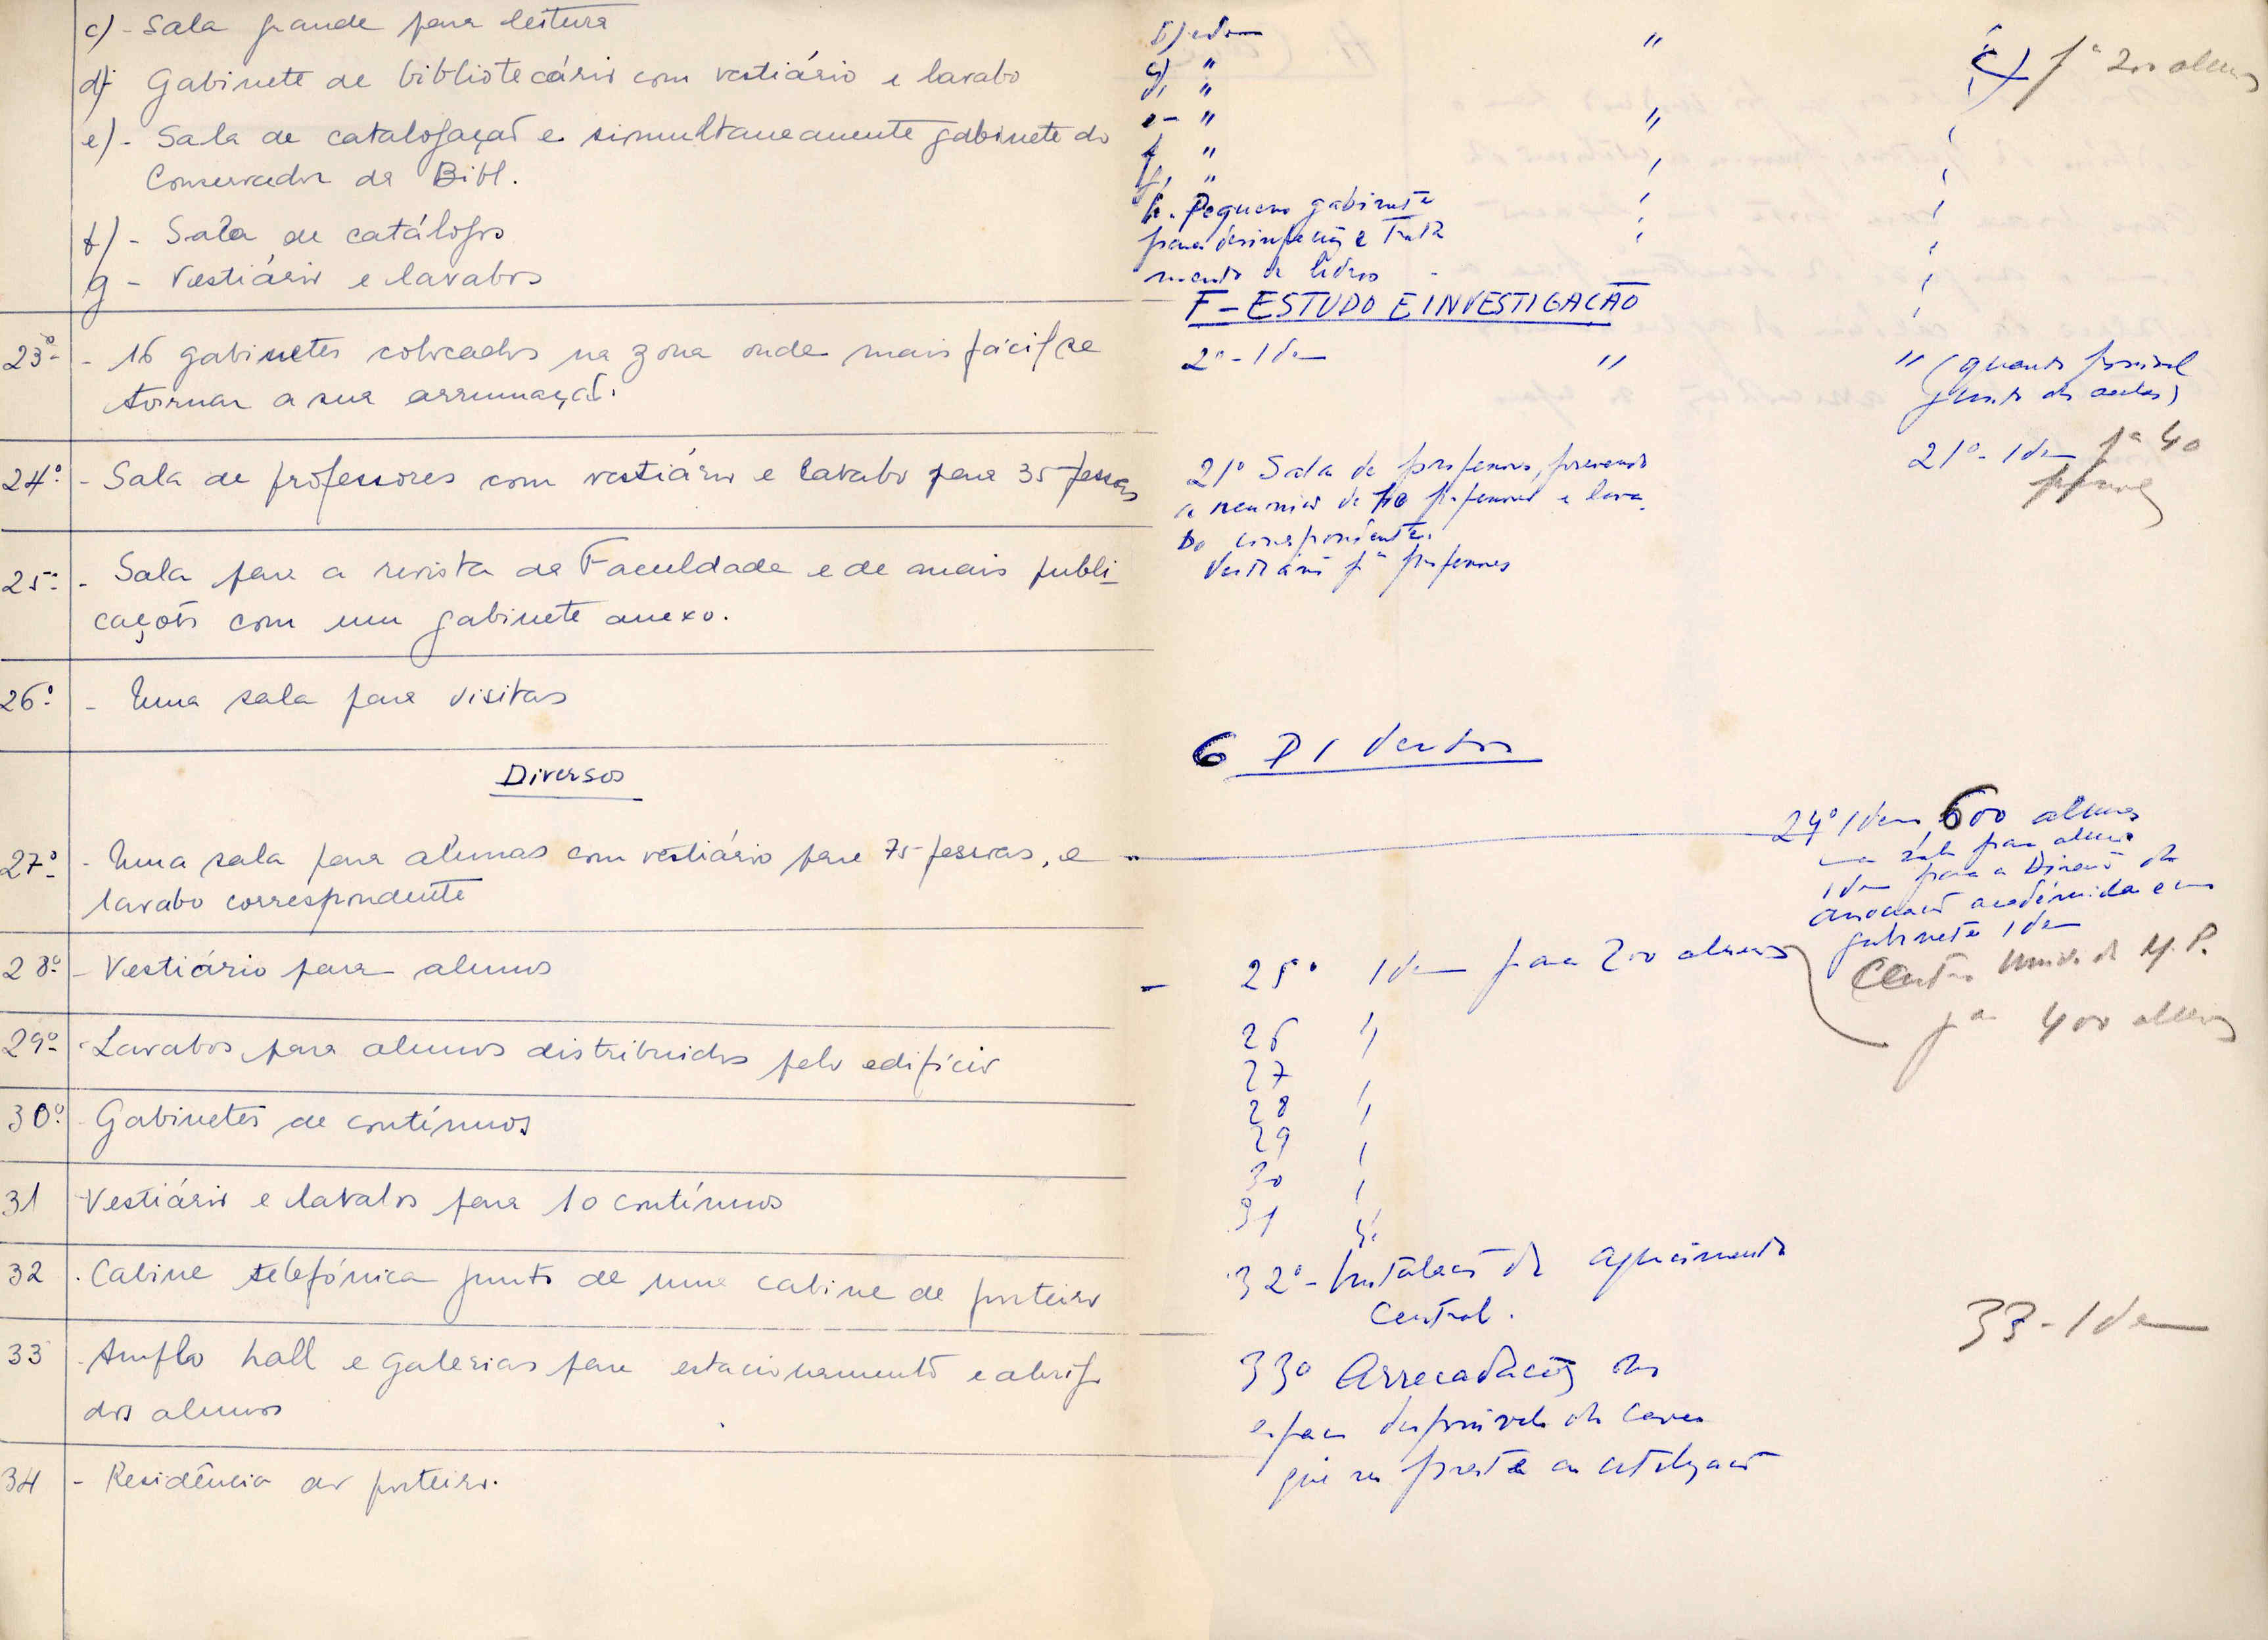 c) - Sala grande para leitura
d) Gabinete de bibliotecário com vestiário e lavabo
e) - Sala de catalogação e simultaneamente gabinete do
Conservador da Bibl.
f) - Sala de catálogos
g - Vestiário e lavabos
23º - 16 gabinetes colocados na zona onde mais fácil se
tornar a sua arrumação.
24º - Sala de professores com vestiário e lavabo para 35 pessoas
25º - Sala para a revista da Faculdade e de mais publi-
cações com um gabinete anexo.
26º - Uma sala para visitas
Diversos
27º - Uma sala para alunas com vestiário para 75 pessoas, e
lavabo correspondente
28º - Vestiário para alunos
29º - Lavabos para alunos distribuidos pelo edifício
30º - Gabinetes de contínuos
31 - Vestiário e lavabos para 10 contínuos
32 - Cabine telefónica junto de uma cabine de porteiro
33 - Amplo hall e galerias para estacionamento e abrigo
dos alunos
34 - Residência do porteiro.
b) idem "
g) "
d, "
e - " "
f, "
g, "
h - Pequeno gabinete
para desinfecção e trata
mento de livros
F - ESTUDO E INVESTIGAÇÃO
2º - Idem "
21º Sala de professores, prevendo
a reunião de professores e lava-
bo correspondente.
Vestiário pª professores
6 Diversos
25º Idem para 200 alunos
26 "
27
28 "
29 "
30 "
31 "
32º - Instalação de aquecimento
Central.
33º Arrecadação nos
espaços disponíveis da cave
que se preste a utilização
c) pª 200 alunos
" (quanto possível
junto das aulas)
21º - Idem pª 40
24º Idem 600 alunos
uma sala para alunos
Idem para a Direcção da
associação académica e um
gabinete Idem
Centro Univ. da M. P.
pª 400 alunos
33 - Idem